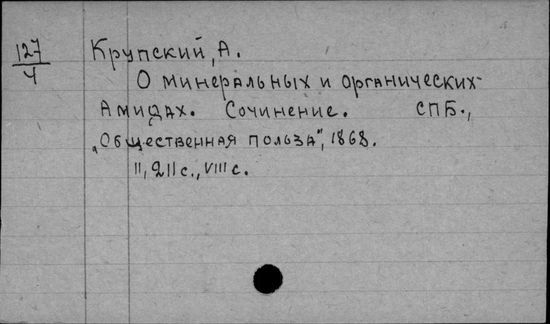 127/4
Крупский, А.
О минеральных и органических
Амидах. Сочинение. СПБ.,
„Общественная польза", 1868.
II, 211 с., VIII с.